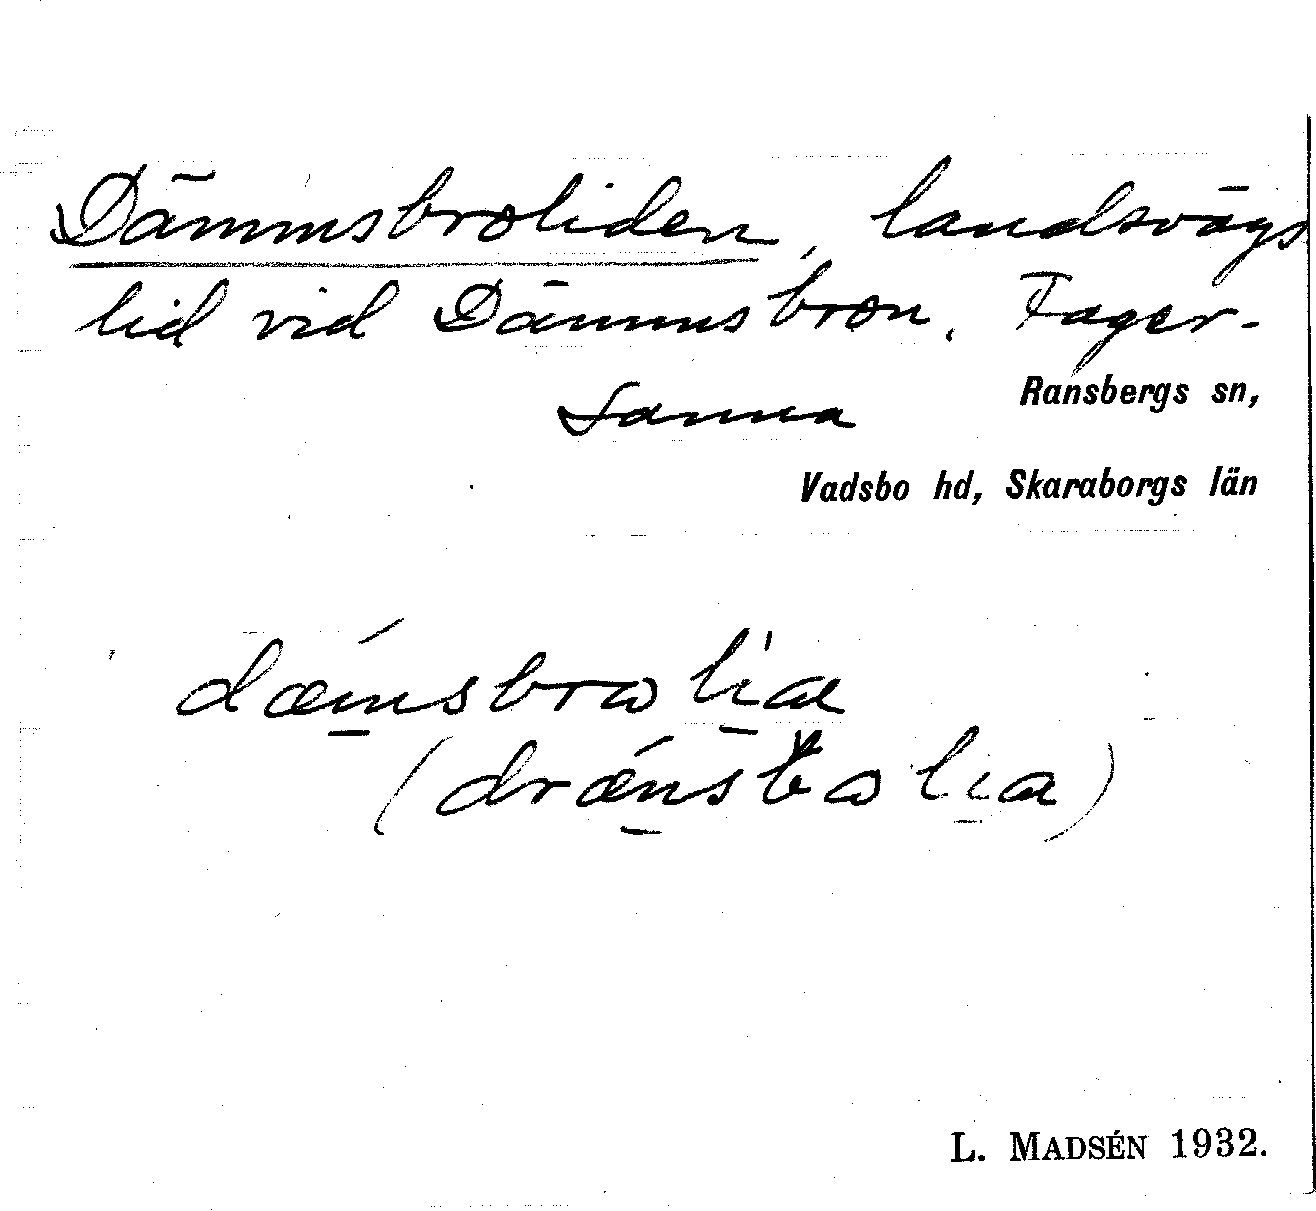 Dämmsbroliden, landsvägs
lid vid Dämmsbron. Fager-
sanna
Ransbergs sn,
Vadsbo hd, Skaraborgs län
dæ̀msbrɷ li'a
(dræ̀nsbɷ lia)
L. MADSÉN 1932.